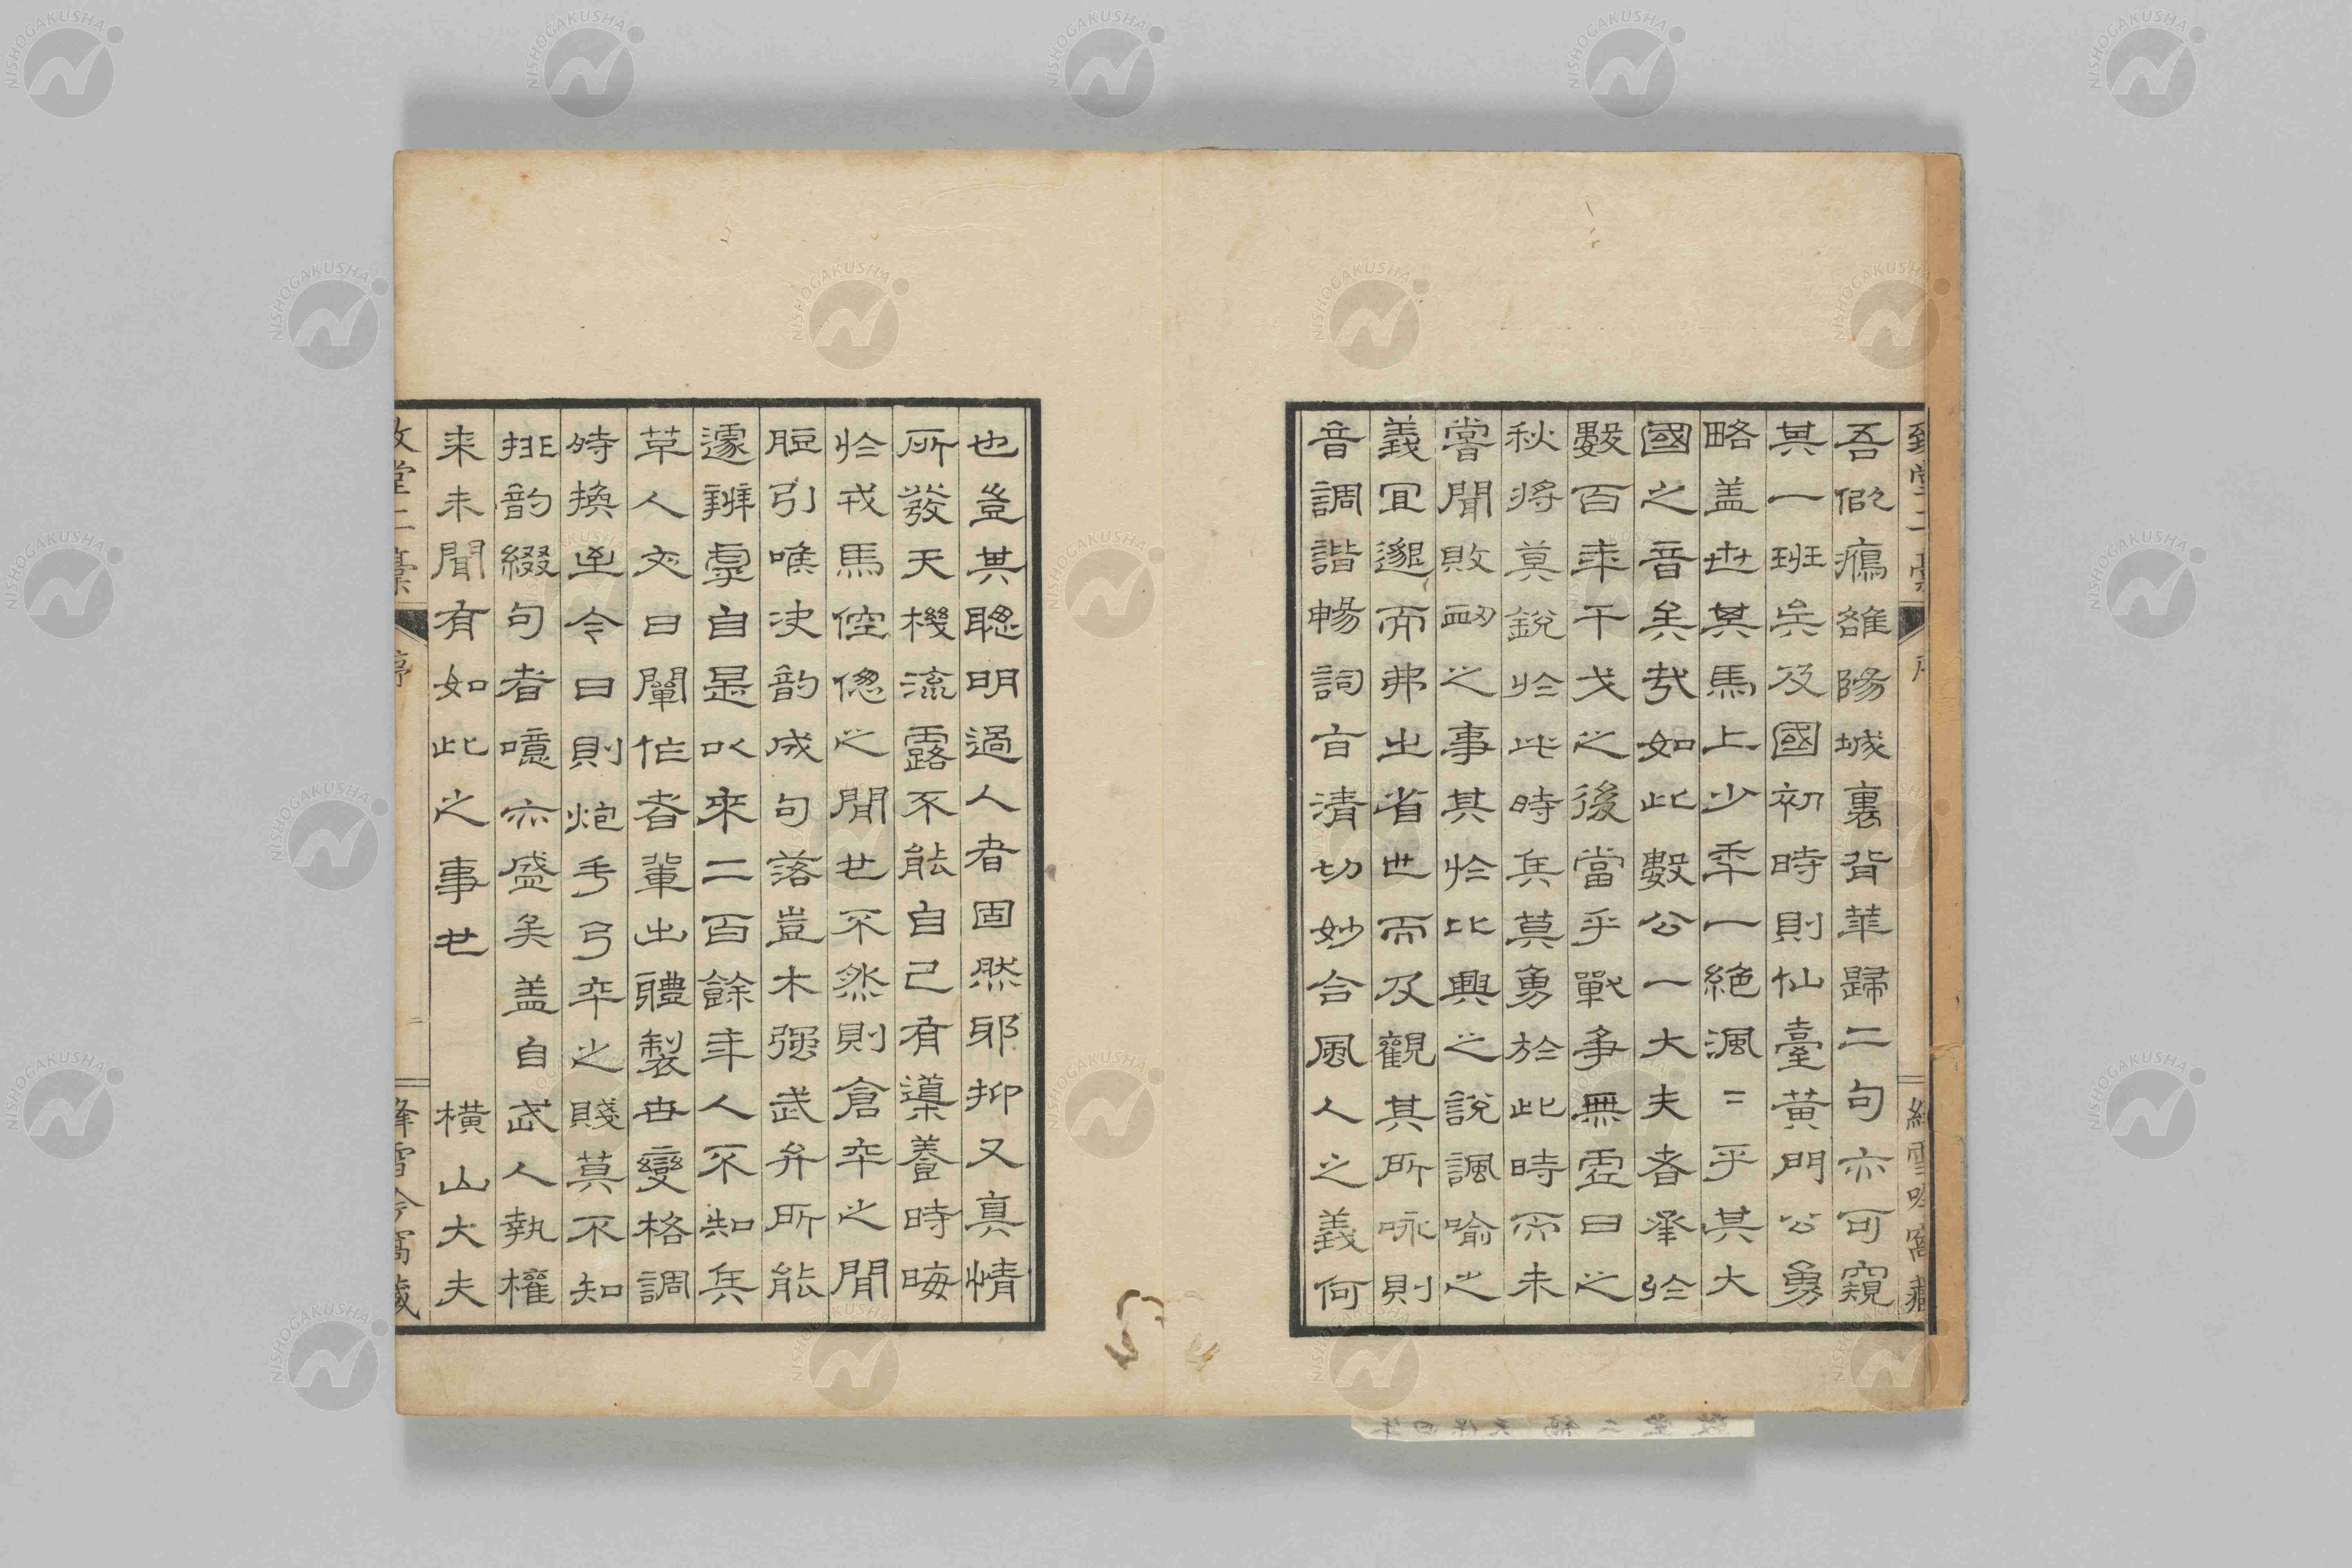 吾俶癘雒陽城裏背華歸二句亦可窺
其一班矣及國初時則仙臺黃門公勇
略盖世其馬上少年一絕渢〻乎其大
國之音矣哉如此數公一大夫者承於
數百年干戈之後當乎戰爭無虛日之
秋將莫銳於此時兵莫勇於此時而未
嘗聞敗衂之事其於比興之說諷喻之
義宜邈而弗出省世而及觀其所咏則
音調諧暢詞旨清切妙合風人之義何
也豈其聰明過人者固然邪抑又真情
所發天機流露不能自己有導養時晦
於戎馬倥偬之間也不然則倉卒之間
脰引喉決韵成句落豈木强武弁所能
遽辨虖自是以來二百餘年人不知兵
草人文日闡作者輩出體製毋變格調
時換迄今日則炮手弓卒之賤莫不知
挑韵綴句者噫亦盛矣盖自武人執權
来未聞有如此之事也 橫山大夫
堂二稾 序
絳雪吟窩藏
敬堂二稿 天保四年
NISHOGAKUSHA